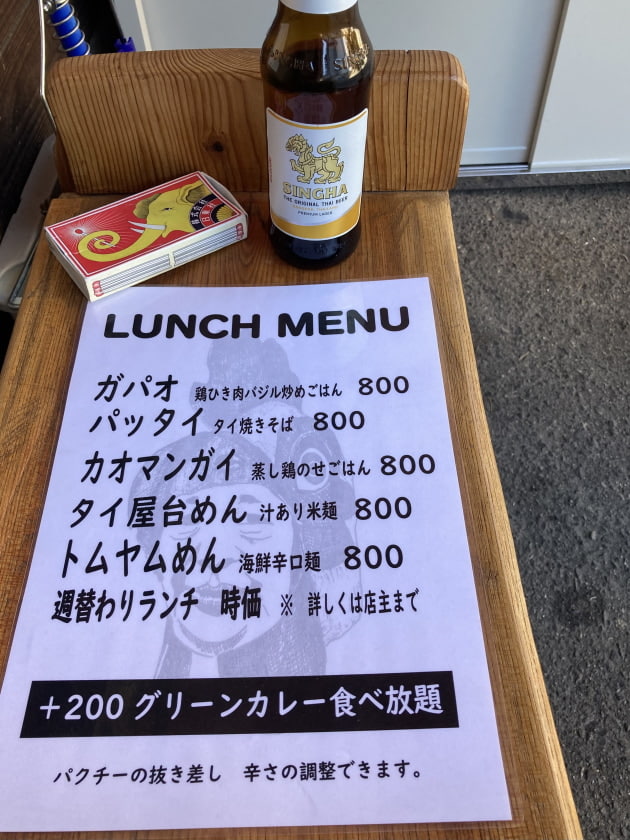 SINGHA
THE ORIGINAL THAI BEER
PREMIUM LAGER
LUNCH MENU
ガパオ 鶏ひき肉バジル炒めごはん 800
パッタイ タイ焼きそば 800
カオマンガイ 蒸し鶏のせごはん 800
タイ屋台めん 汁あり米麺 800
トムヤムめん 海鮮辛口麺 800
週替わりランチ 時価 ※ 詳しくは店主まで
+200 グリーンカレー食べ放題
パクチーの抜き差し 辛さの調整できます。